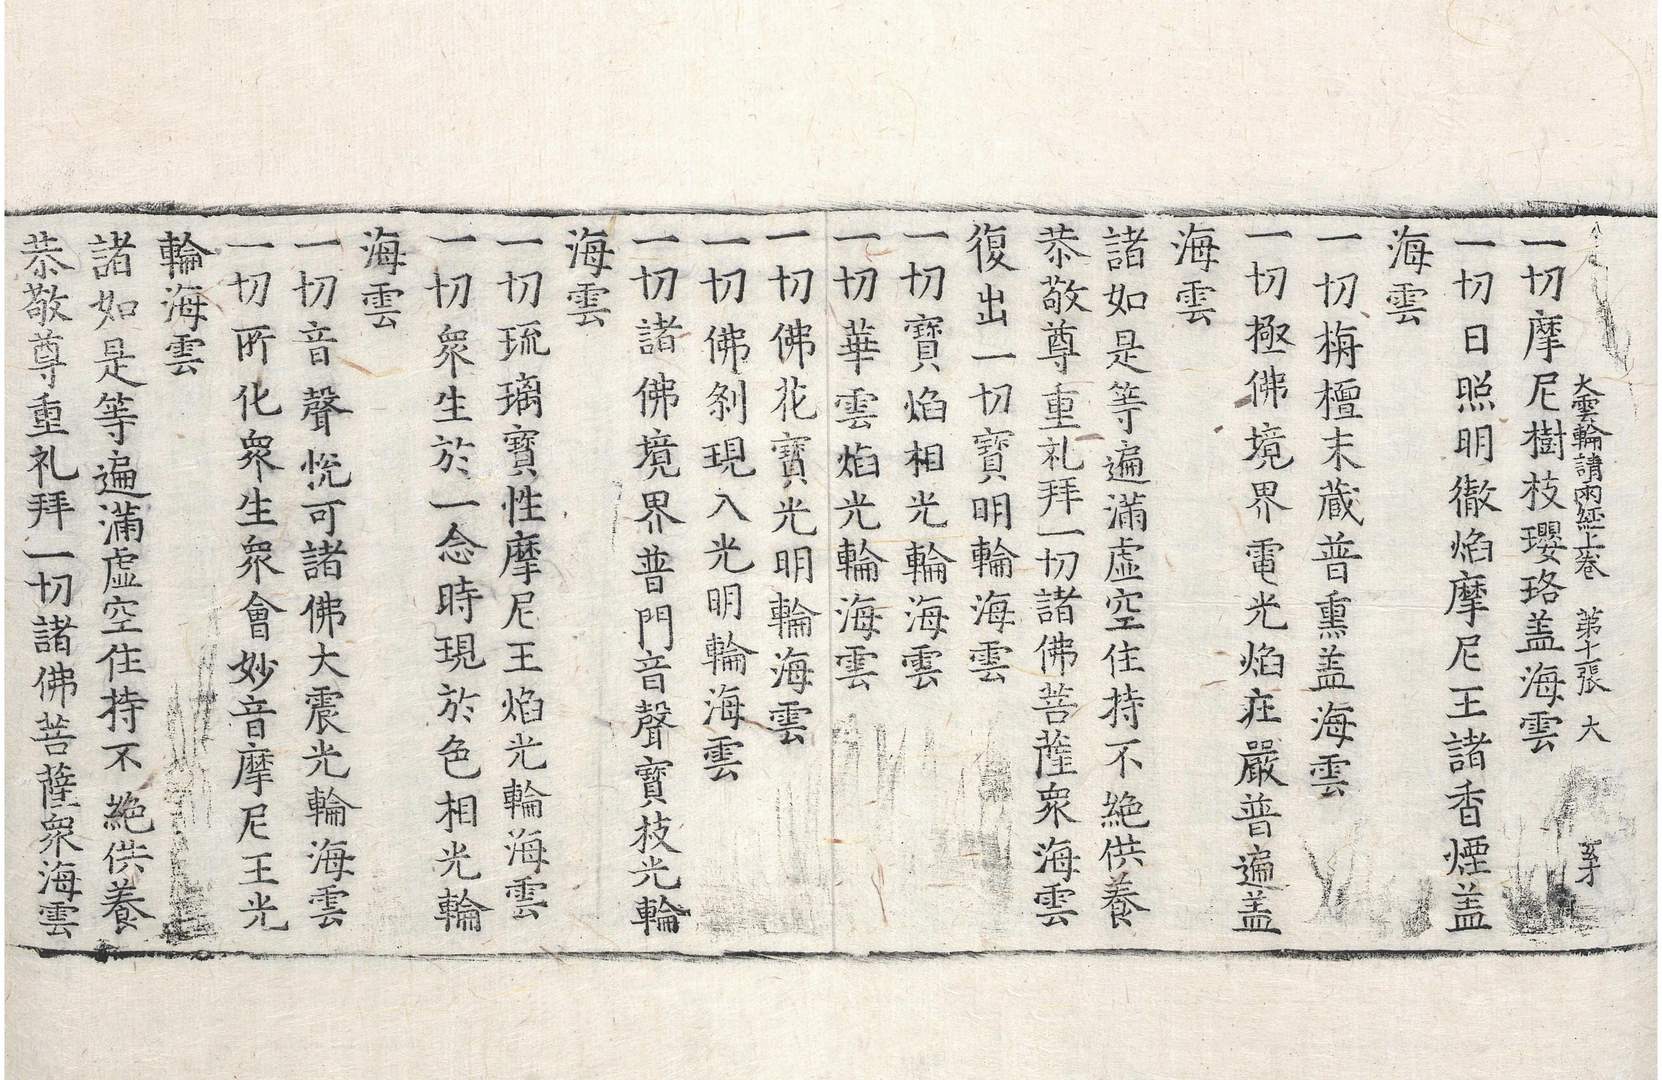 大雲輪請雨經上卷 第十張 大 玄才
一切摩尼樹枝瓔珞盖海雲
一切日照明徹焰摩尼王諸香煙盖
海雲
一切栴檀末藏普熏盖海雲
一切極佛境界電光焰庄嚴普遍盖
海雲
諸如是等遍滿虛空住持不絶供養
恭敬尊重礼拜一切諸佛菩薩衆海雲
復出一切寶明輪海雲
一切寶焰相光輪海雲
一切華雲焰光輪海雲
一切佛花寶光明輪海雲
一切佛剎現入光明輪海雲
一切諸佛境界普門音聲寶枝光輪
海雲
一切琉璃寶性摩尼王焰光輪海雲
一切衆生於一念時現於色相光輪
海雲
一切音聲悅可諸佛大震光輪海雲
一切所化衆生衆會妙音摩尼王光
輪海雲
諸如是等遍滿虛空住持不絶供養
恭敬尊重礼拜一切諸佛菩薩衆海雲